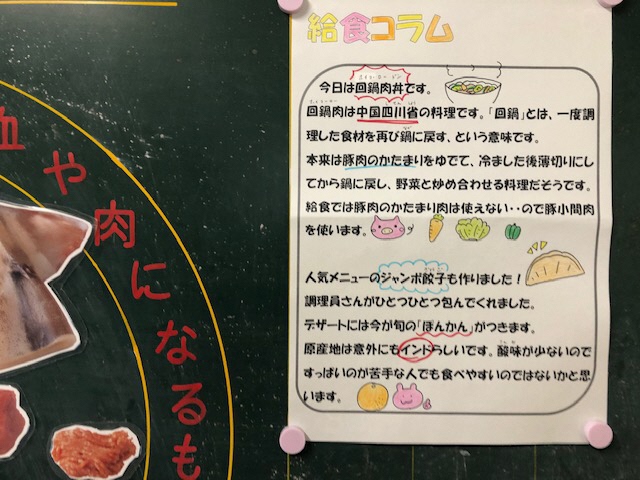 血や肉になるも
給食コラム
今日は回鍋肉丼です。
回鍋肉は中国四川省の料理です。「回鍋」とは、一度調
理した食材を再び鍋に戻す、という意味です。
本来は豚肉のかたまりをゆでて、冷ました後薄切りにし
てから鍋に戻し、野菜と炒め合わせる料理だそうです。
給食では豚肉のかたまり肉は使えない・・ので豚小間肉
を使います。
人気メニューのジャンボ餃子も作りました!
調理員さんがひとつひとつ包んでくれました。
デザートには今が旬の「ぽんかん」がつきます。
原産地は意外にもインドらしいです。酸味が少ないので
すっぱいのが苦手な人でも食べやすいのではないかと思
います。